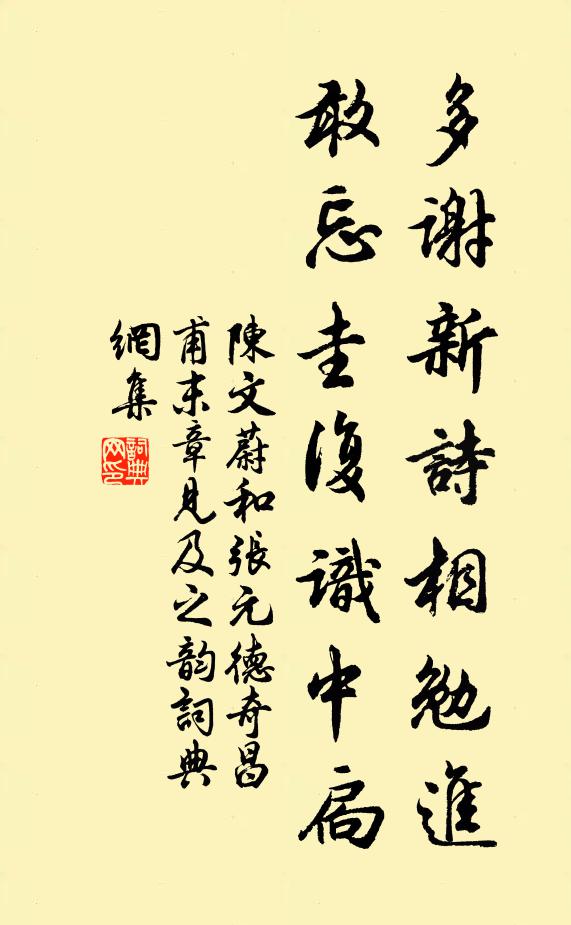 多謝新詩相勉進
敢忘圭復識中扃
陳文蔚和張元德寄昌
甫末章見及之韵詞典
網集
詞典網印